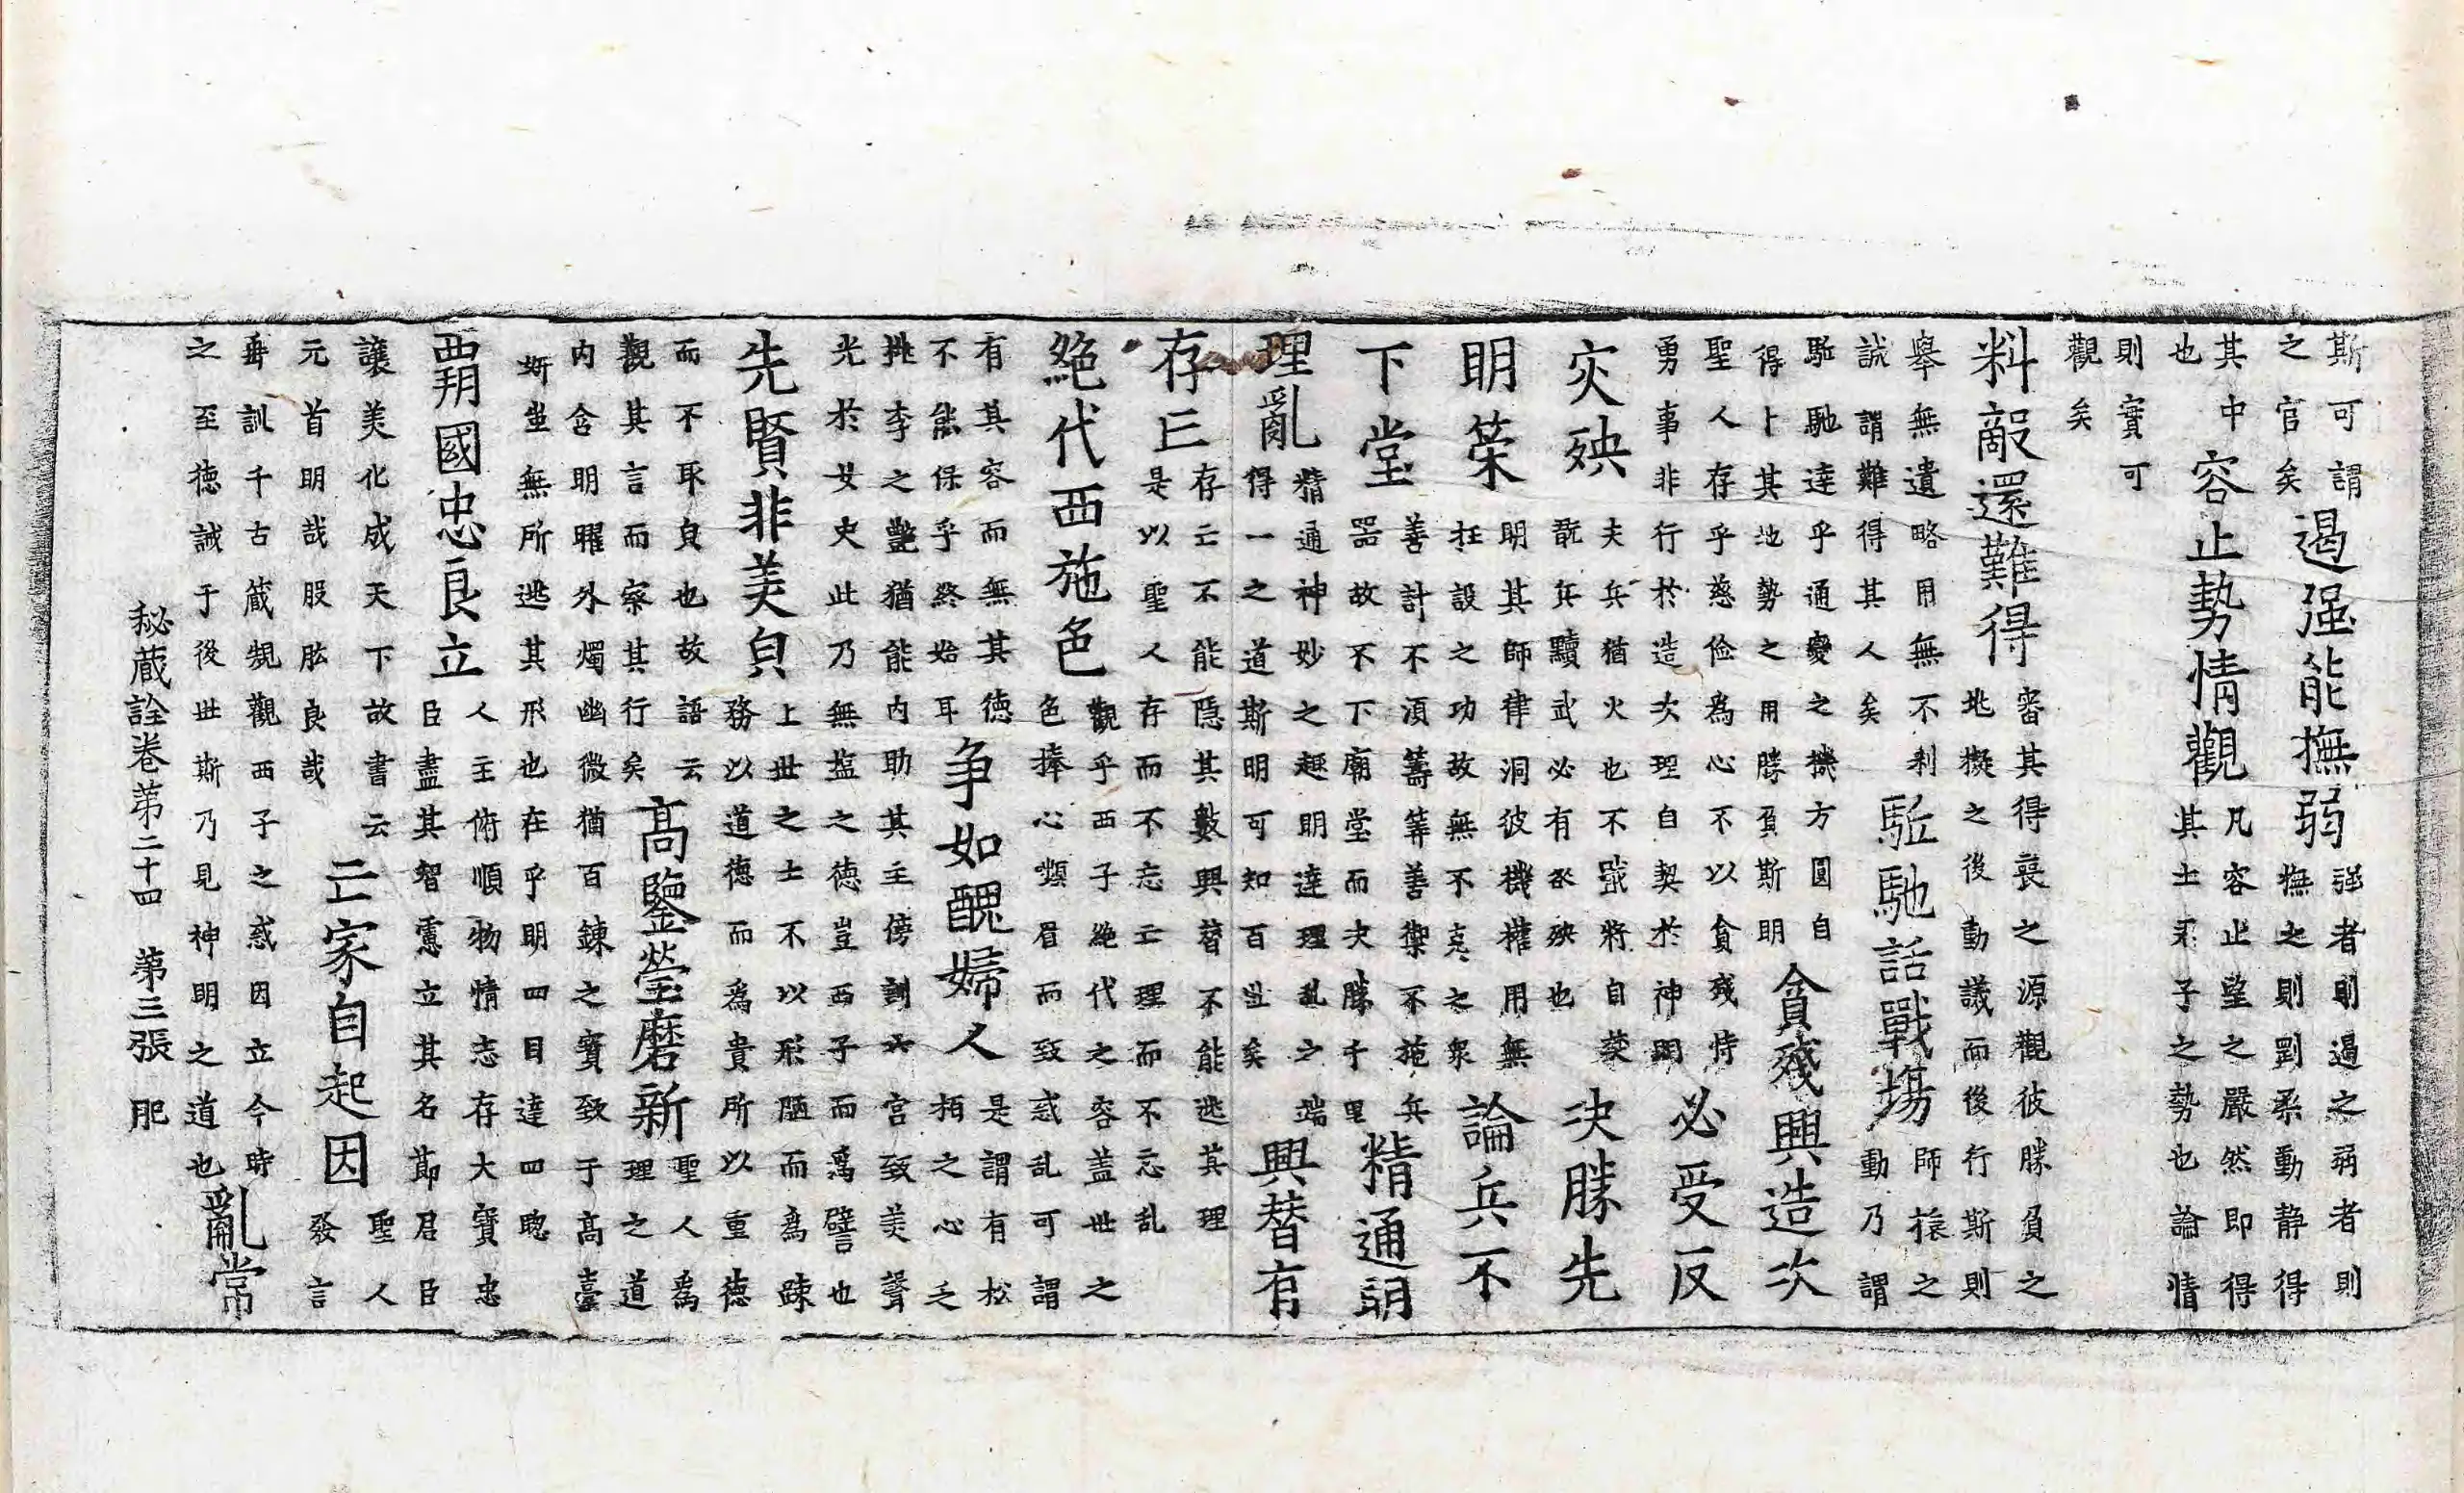 斯可謂
之官矣
遏强能撫弱
强者則遏之弱者則
撫之則剛柔動静得
其中
也
容止勢情觀
凡容止望之嚴然即得
其士系子之勢也論情
則實可
觀矣
料敵還難得
審其得喪之源觀彼勝負之
地擬之後動議而後行斯則
舉無遺略用無不利
誠謂難得其人矣
駈馳話戰塲
師旅之
動乃謂
駈馳達乎通變之機方圓自
得卜其地勢之用勝負斯明
貪殘興造次
聖人存乎慈儉為心不以貪殘恃
勇事非行於造次理自契於神明
必受反
灾殃
夫兵猶火也不戢將自焚
翫兵黷武必有灾殃也
決勝先
明策
明其師律洞彼機權用無
枉設之功故無不克之衆
論兵不
下堂
善計不湏籌筭善禦不施兵
器故不下廟堂而決勝千里
精通明
理亂
精通神妙之趣明達理乱之端
得一之道斯明可知百世矣
興替有
存亡
存亡不能隠其數興替不能逃其理
是以聖人存而不忘亡理而不忘乱
絶代西施色
觀乎西子絶代之容盖世之
色捧心嚬眉而致惑乱可謂
有其容而無其徳
不能保乎終始耳
争如醜婦人
是謂有松
柏之心乏
桃李之艶猶能内助其主傍訓六宫致美聲
光於女史此乃無塩之徳豈西子而為譬也
先賢非美皃
上世之士不以形陋而為踈
務以道德而為貴所以重德
而不取皃也故語云
觀其言而察其行矣
髙鑒瑩磨新
聖人為
理之道
内含明曜外燭幽微猶百錬之寳致于髙臺
妍蚩無所逃其形也在乎明四目達四聦
覇國忠良立
人主俯順物情志存大寳忠
臣盡其智慮立其名節君臣
讓美化成天下故書云
元首明哉股肱良哉
亡家自起因
聖人
發言
垂訓千古箴規觀西子之惑因立今時
之至徳誡于後世斯乃見神明之道也
亂常
秘蔵詮巻苐二十四　苐三張　肥